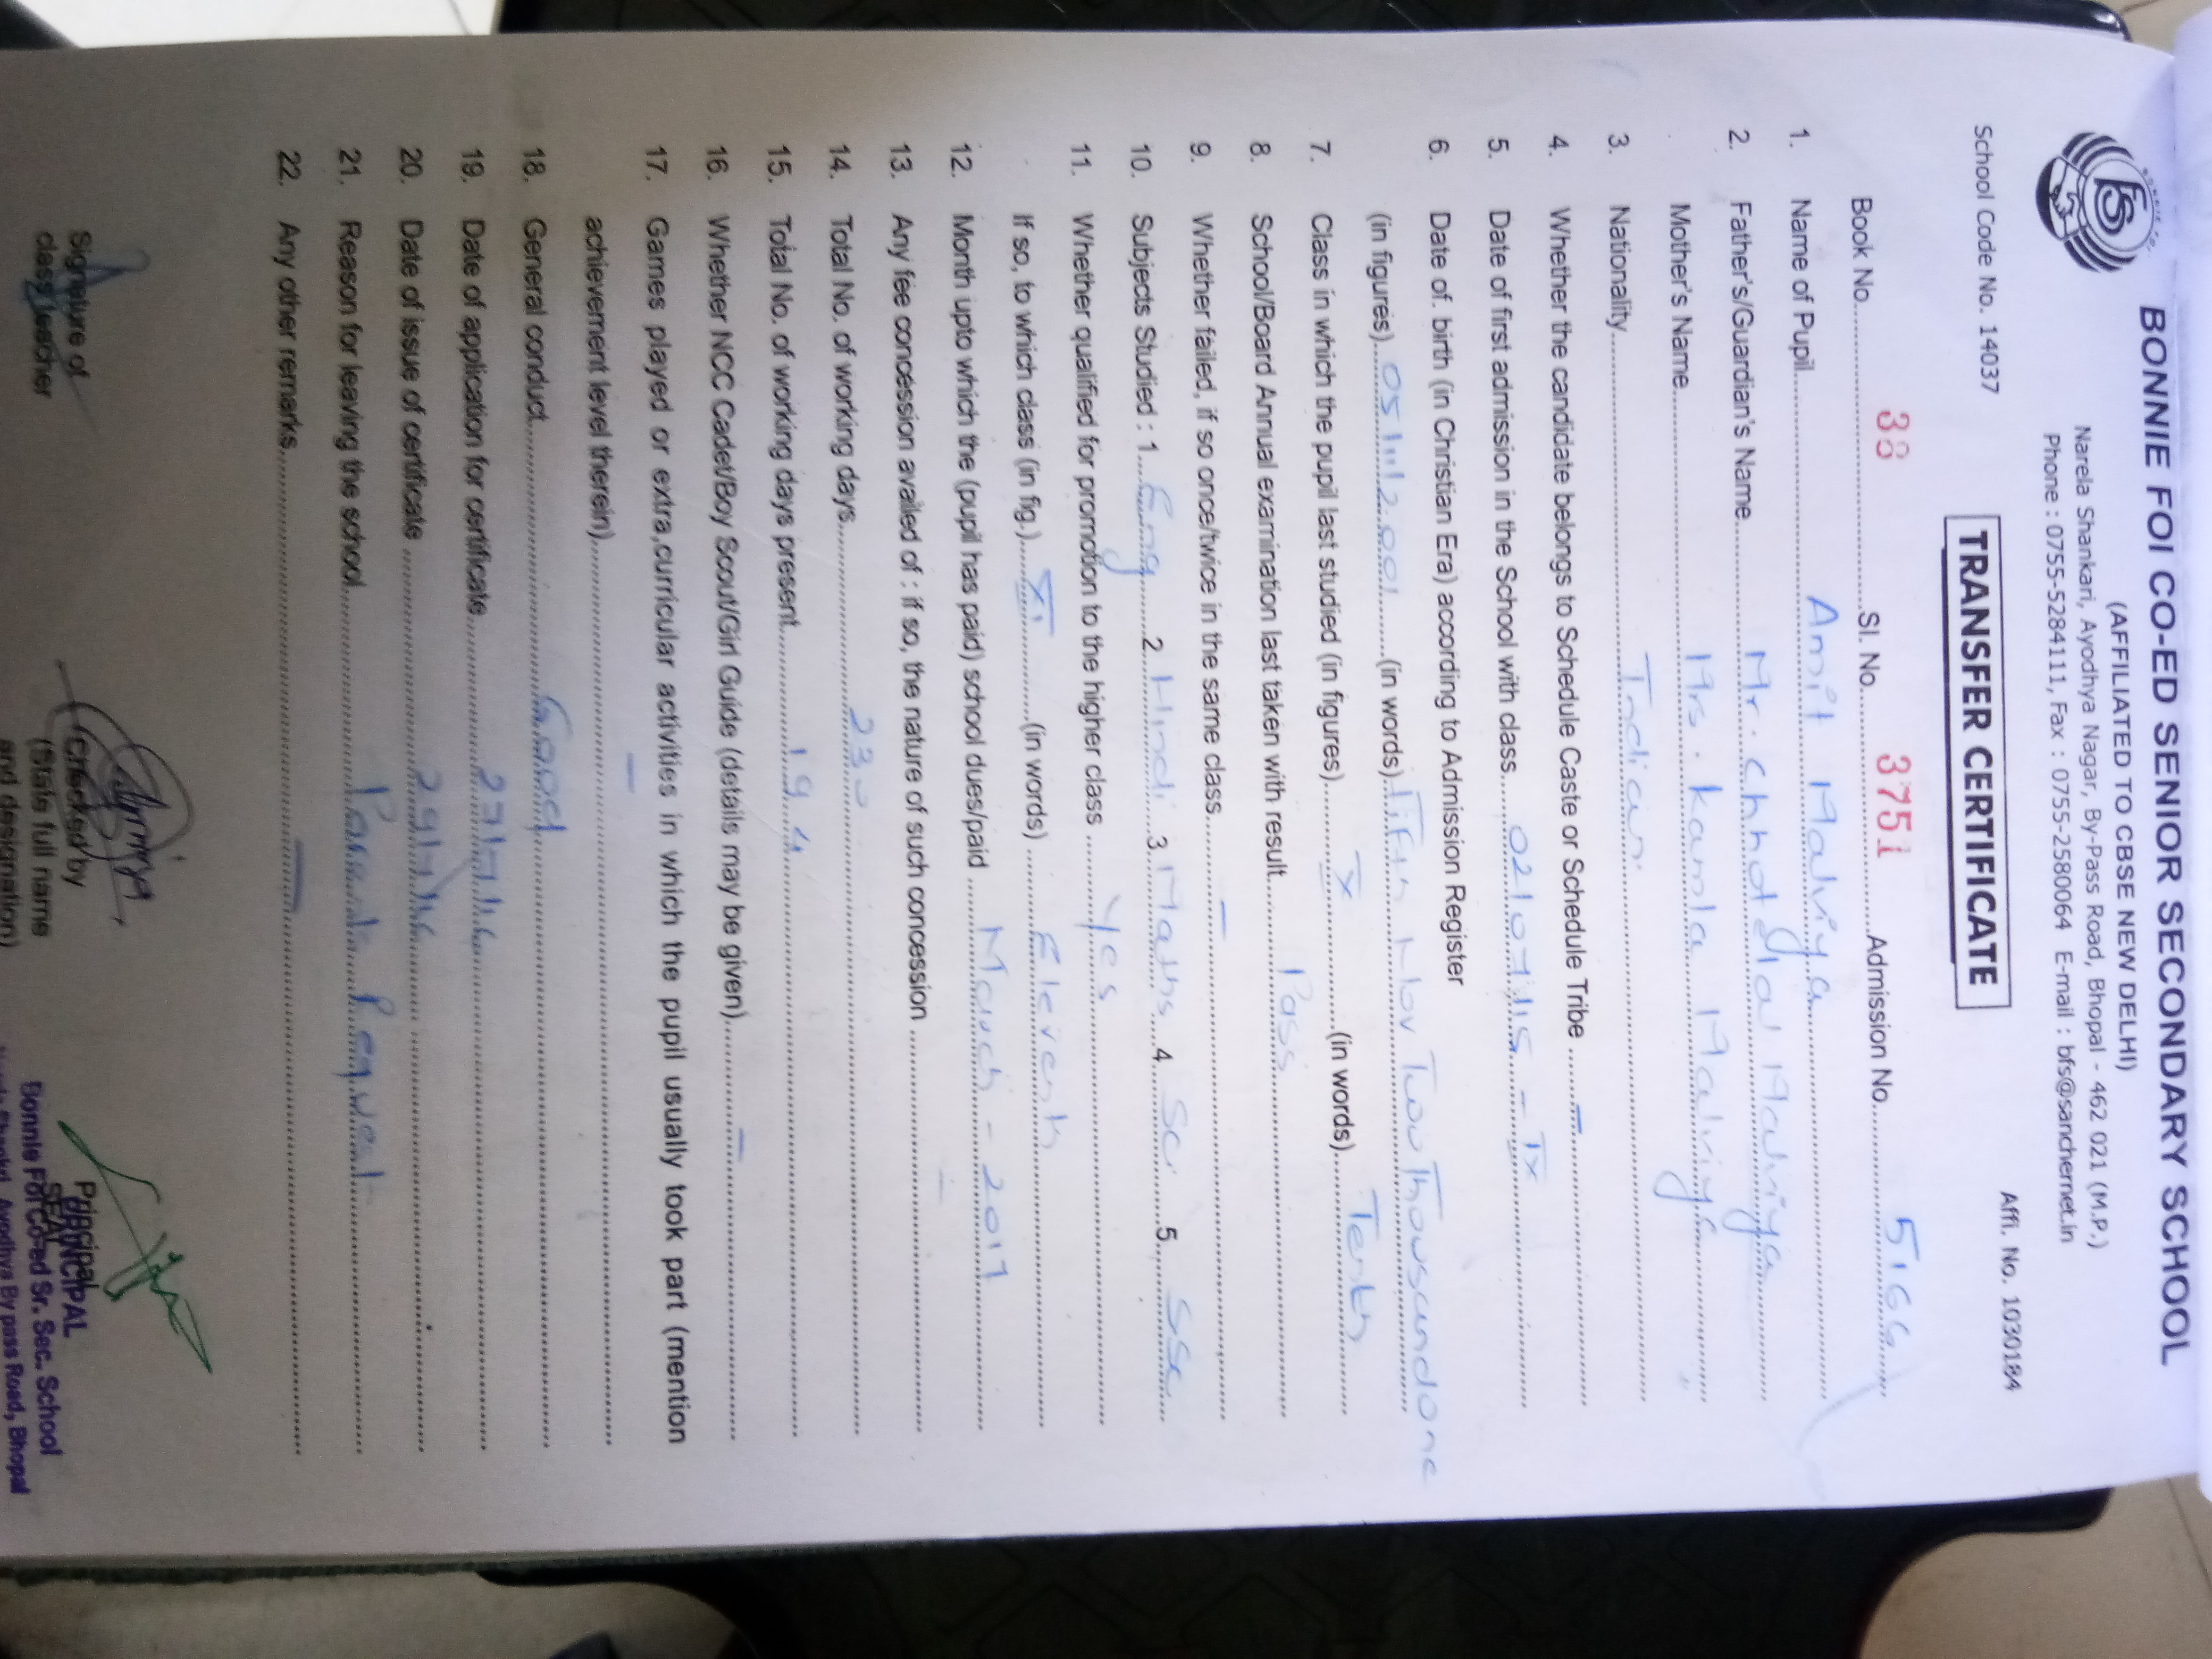 BONNIE FOI CO-ED SENIOR SECONDARY SCHOOL
(AFFILIATED TO CBSE NEW DELHI)
Narela Shankari, Ayodhya Nagar, By-Pass Road, Bhopal - 462 021 (M.P.)
Phone : 0755-5284111, Fax : 0755-2580064 E-mail : bfs@sanchernet.in
School Code No. 14037 Affi. No. 1030184
TRANSFER CERTIFICATE
Book No. 38 Sl. No. 3751 Admission No. 5166
1. Name of Pupil Amit Malviya
2. Father's/Guardian's Name Mr. Chhotelal Malviya
Mother's Name Mrs. Kamla Malviya
3. Nationality Indian
4. Whether the candidate belongs to Schedule Caste or Schedule Tribe —
5. Date of first admission in the School with class 02/07/15 - IX
6. Date of. birth (in Christian Era) according to Admission Register
(in figures) 05/11/2001 (in words) Fifth Nov Two Thousand one
7. Class in which the pupil last studied (in figures) X (in words) Tenth
8. School/Board Annual examination last taken with result Pass
9. Whether failed, if so once/twice in the same class —
10. Subjects Studied : 1 Eng 2 Hindi 3 Maths 4 Sc 5 SSc
11. Whether qualified for promotion to the higher class Yes
If so, to which class (in fig.) XI (in words) Eleventh
12. Month upto which the (pupil has paid) school dues/paid March - 2017
13. Any fee concession availed of : if so, the nature of such concession —
14. Total No. of working days
15. Total No. of working days present 194
16. Whether NCC Cadet/Boy Scout/Girl Guide (details may be given) —
17. Games played or extra,curricular activities in which the pupil usually took part (mention
achievement level therein) —
18. General conduct Good
19. Date of application for certificate
20. Date of issue of certificate
21. Reason for leaving the school Parents Request
22. Any other remarks —
Signature of
class teacher
Checked by
(State full name
and designation)
Principal
SEAL
PRINCIPAL
Bonnie Foi Co-ed Sr. Sec. School
Ayodhya By pass Road, Bhopal